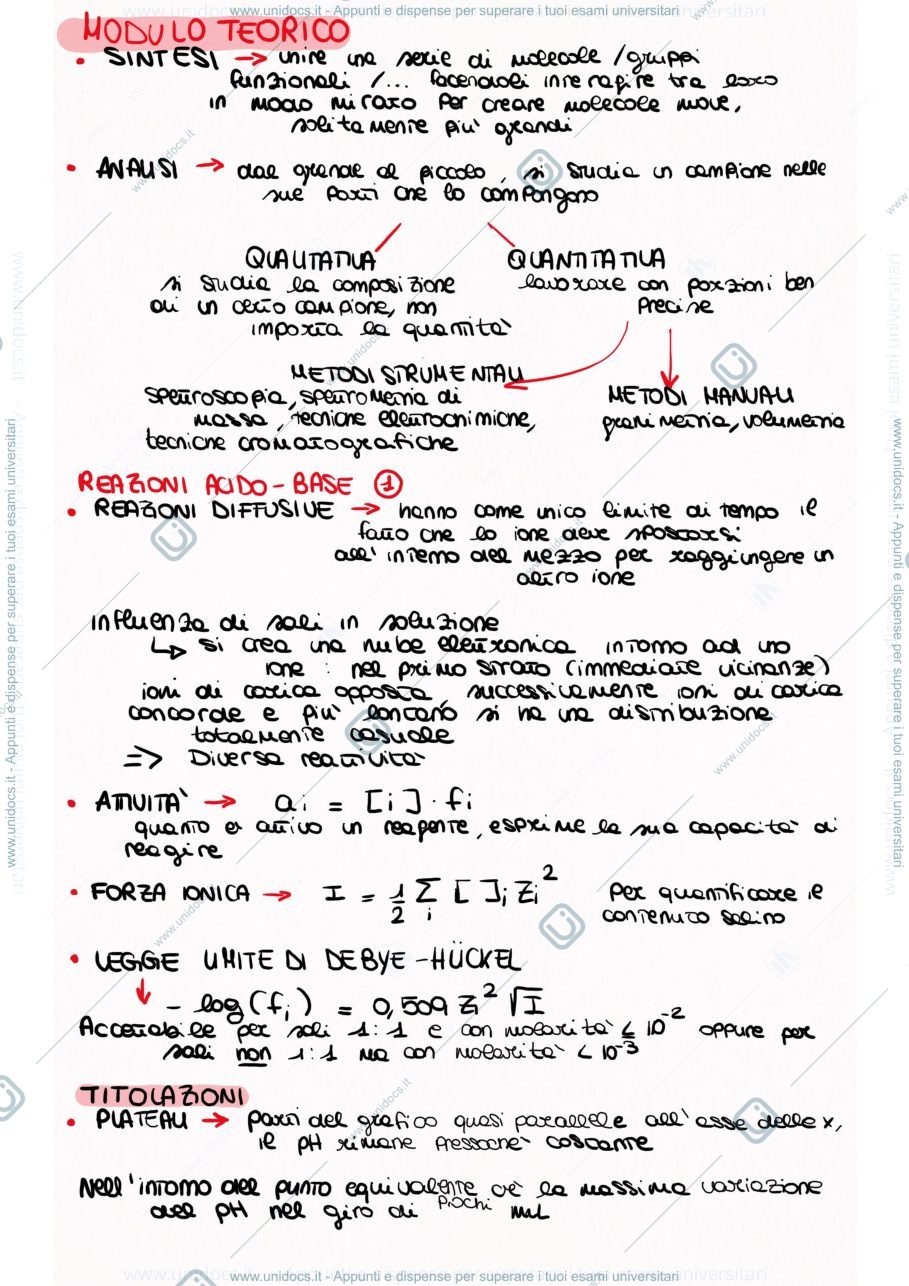 www.unidocs.it - Appunti e dispense per superare i tuoi esami universitari
MODULO TEORICO
• SINTESI → unire una serie di molecole / gruppi
funzionali /... facendoli interagire tra loro
in modo mirato per creare molecole nuove,
solitamente più grandi
• ANALISI → dal grande al piccolo, si studia un campione nelle
sue parti che lo compongono
QUALITATIVA QUANTITATIVA
si studia la composizione lavorare con porzioni ben
di un certo campione, non precise
importa la quantità
METODI STRUMENTALI
spettroscopia, spettrometria di METODI MANUALI
massa, tecniche elettrochimiche, gravimetria, volumetria
tecniche cromatografiche
REAZIONI ACIDO-BASE ①
• REAZIONI DIFFUSIVE → hanno come unico limite di tempo il
fatto che lo ione deve spostarsi
all'interno del mezzo per raggiungere un
altro ione
influenza di sali in soluzione
↳ si crea una nube elettronica intorno ad uno
ione : nel primo strato (immediate vicinanze)
ioni di carica opposta, successivamente ioni di carica
concorde e più lontano si ha una distribuzione
totalmente casuale
=> Diversa reattività
• ATTIVITÀ → ai = [i] · fi
quanto è attivo un reagente, esprime la sua capacità di
reagire
• FORZA IONICA → I = 1/2 Σi [ ]i Zi² Per quantificare il
contenuto salino
• LEGGE LIMITE DI DEBYE-HÜCKEL
↓ - log(fi) = 0,509 Zi² √I
Accettabile per sali 1:1 e con molarità ≤ 10⁻² oppure per
sali non 1:1 ma con molarità < 10⁻³
TITOLAZIONI
• PLATEAU → parti del grafico quasi parallele all'asse delle x,
il pH rimane pressoché costante
Nell'intorno del punto equivalente c'è la massima variazione
del pH nel giro di pochi mL
www.unidocs.it - Appunti e dispense per superare i tuoi esami universitari